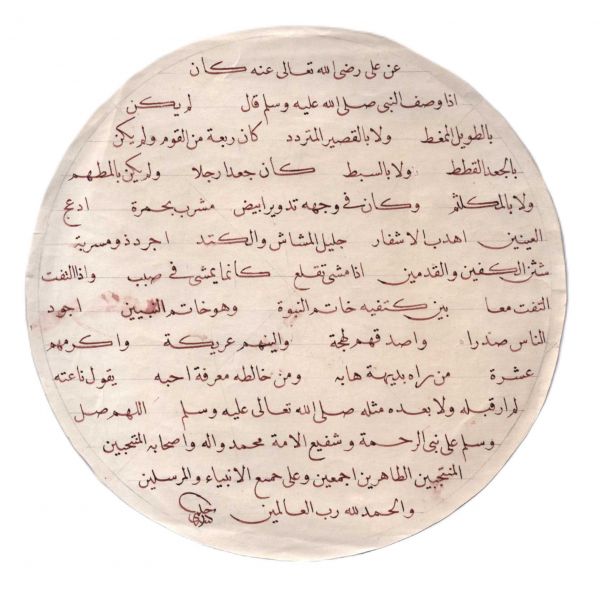 عن على رضى الله تعالى عنه كان
اذا وصف النبى صلى الله عليه وسلم قال لم يكن
بالطويل الممغط ولا بالقصير المتردد كان ربعة من القوم ولم يكن
بالجعد القطط ولا بالسبط كان جعدا رجلا ولم يكن بالمطهم
ولا بالمكلثم وكان فى وجهه تدوير ابيض مشرب بحمرة ادعج
العينين اهدب الاشفار جليل المشاش والكتد اجرد ذو مسربة
شثن الكفين والقدمين اذا مشى تقلع كانما يمشى فى صبب واذا التفت
التفت معا بين كتفيه خاتم النبوة وهو خاتم النبيين اجود
الناس صدرا واصدقهم لهجة والينهم عريكة واكرمهم
عشرة من راه بديهة هابه ومن خالطه معرفة احبه يقول ناعته
لم ار قبله ولا بعده مثله صلى الله تعالى عليه وسلم اللهم صل
وسلم على نبى الرحمة وشفيع الامة محمد واله واصحابه المنتجبين
المنتجبين الطاهرين اجمعين وعلى جميع الانبياء والمرسلين
والحمد لله رب العالمين